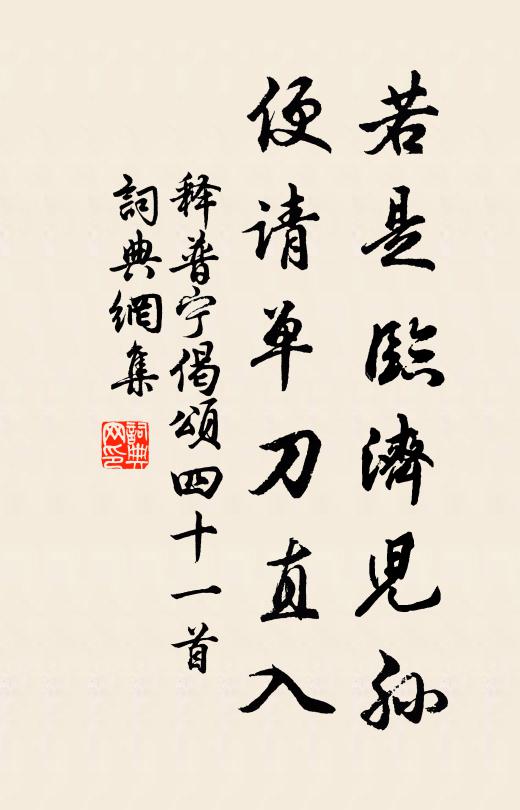 若是臨濟児孫
便请单刀直入
释普宁偈頌四十一首
詞典網集
詞典网印